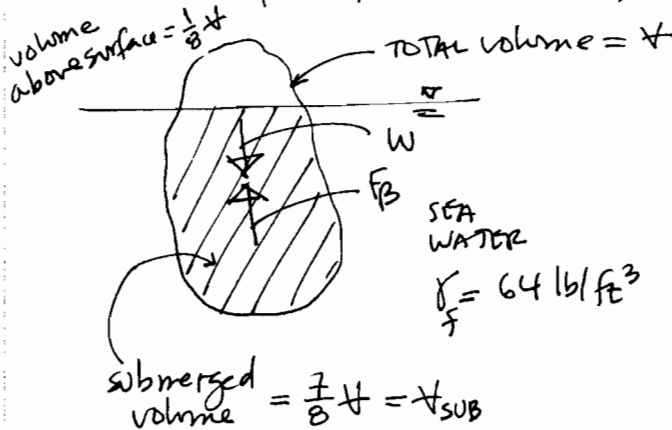 volume
above surface = 1/8 V
TOTAL volume = V
W
FB
SEA
WATER
γf = 64 lb/ft³
submerged
volume = 7/8 V = VSUB